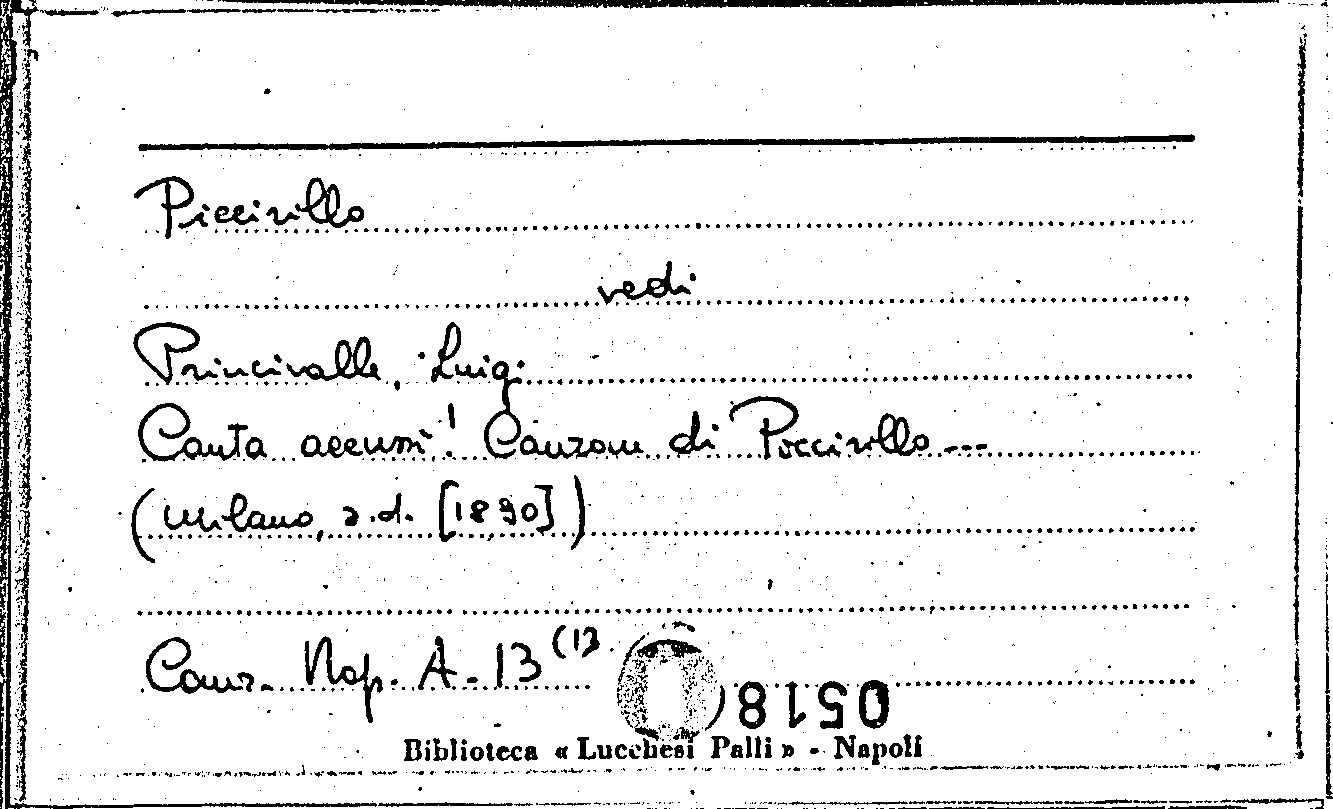 Piccirillo
vedi
Princivalle, Luigi
Canta accussì! Canzone di Piccirillo ---
(Milano, s.d. [1890])
Canz. Nap. A-13 (13
0518
Biblioteca « Lucchesi Palli » - Napoli